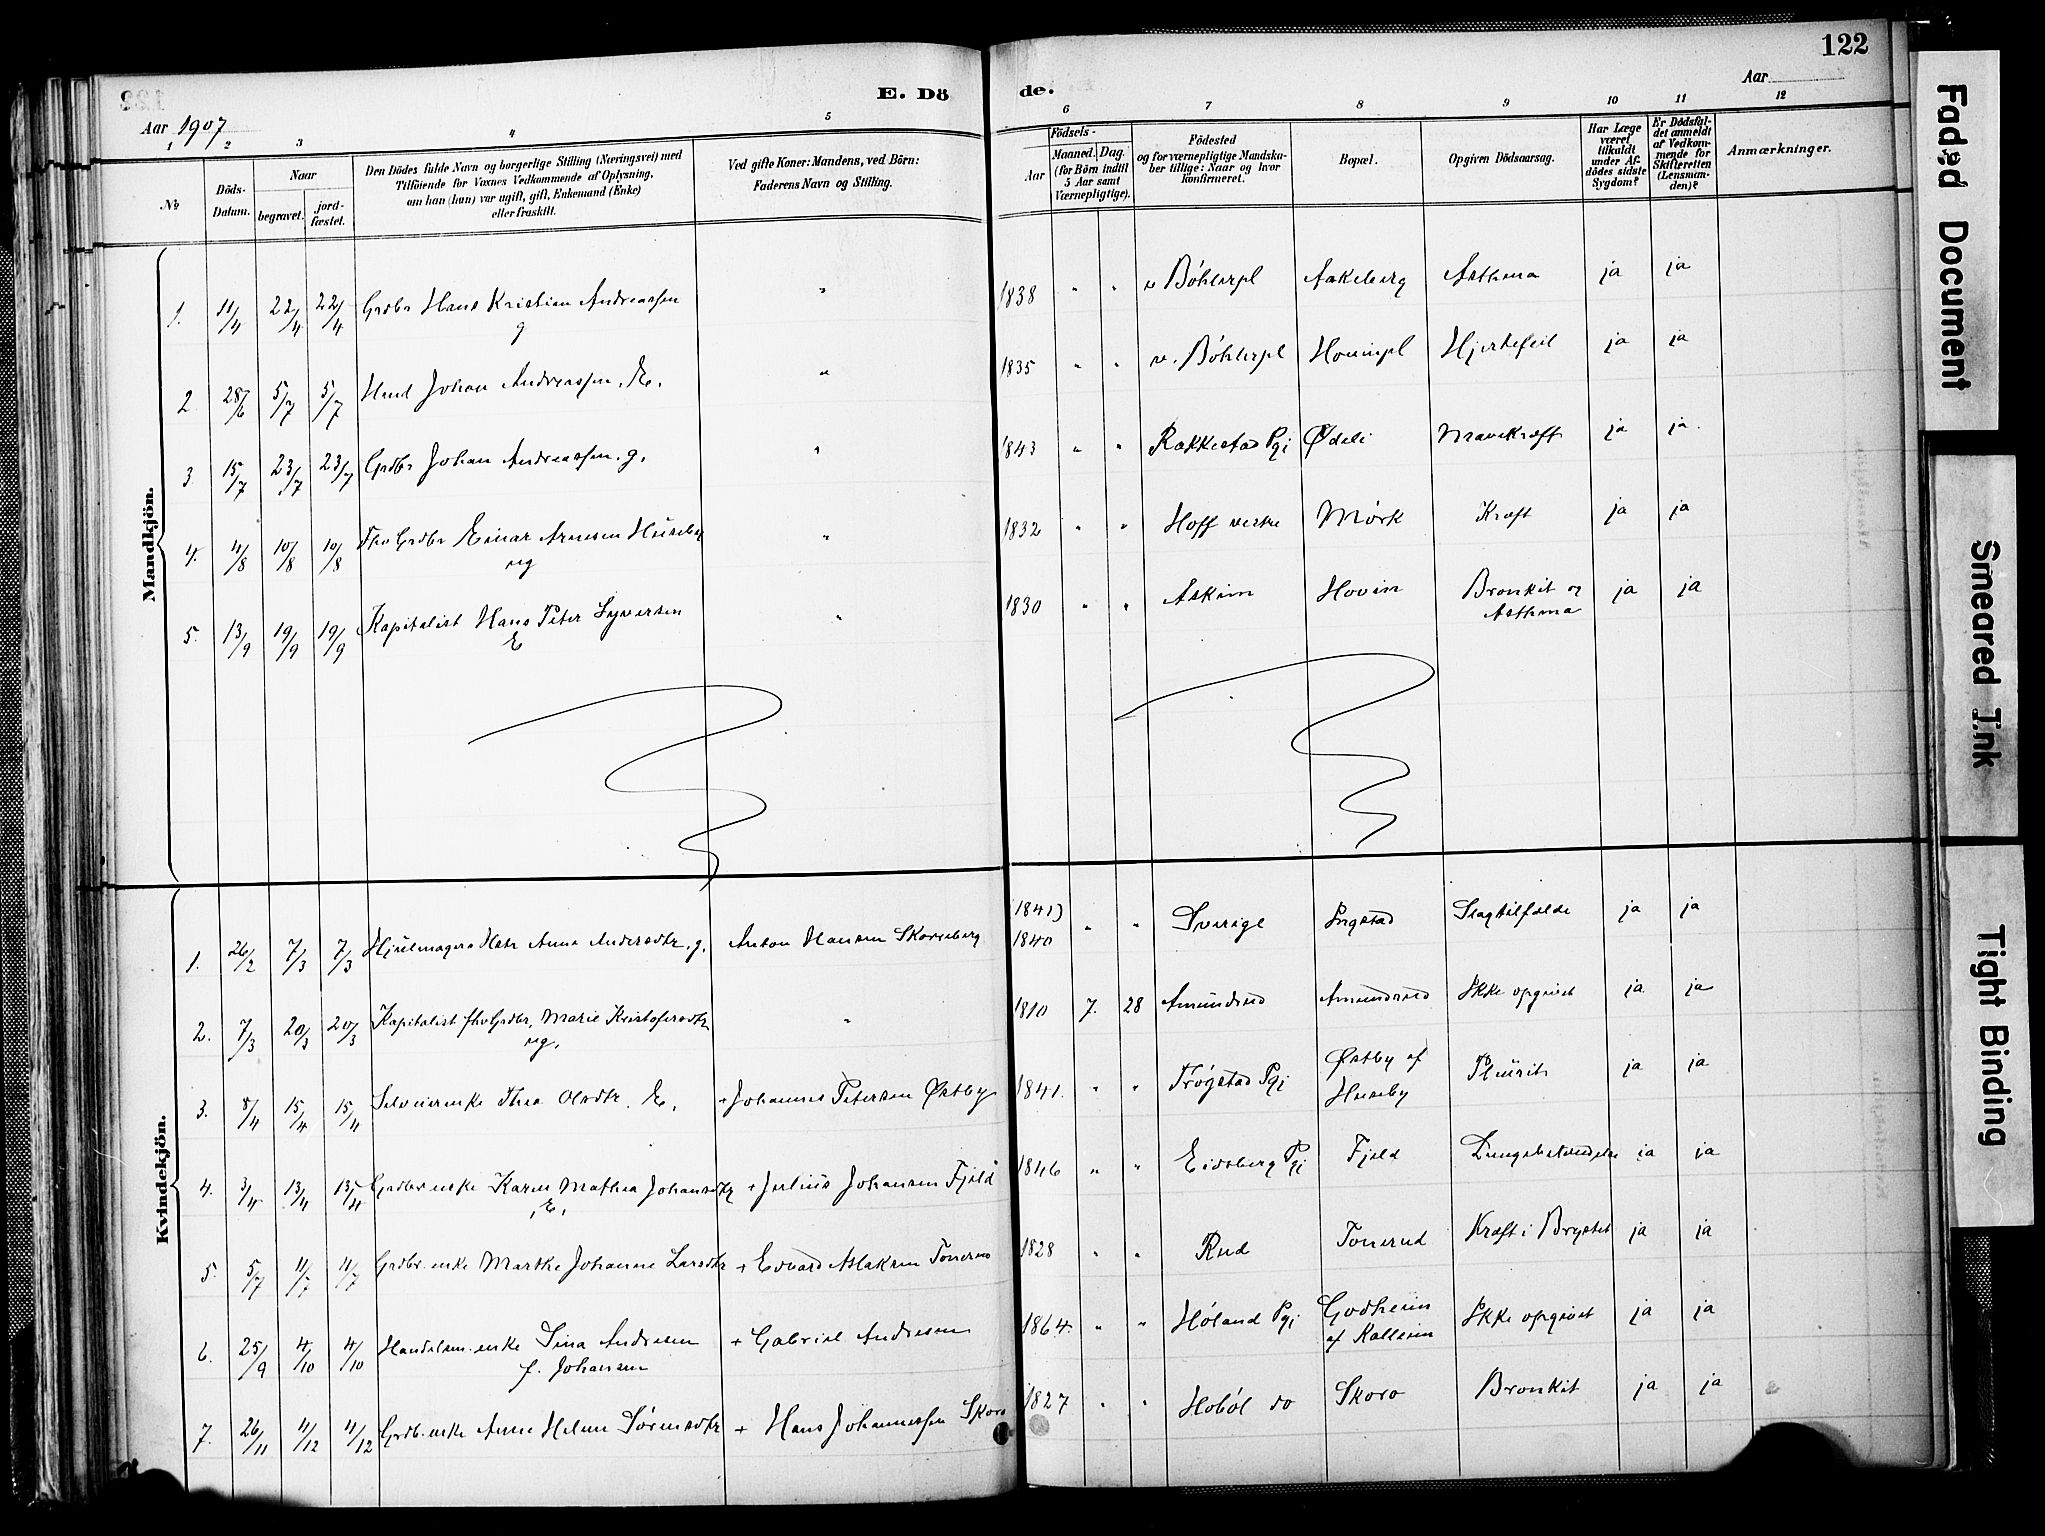 122
E. Dö de.
Aar 1907
Aar
1 2 3 4 5 6 7 8 9 10 11 12
№
Döds-
Datum.
Naar
begravet. jord-
fæstet.
Den Dödes fulde Navn og borgerlige Stilling (Næringsvei) med
Tilföiende for Voxnes Vedkommende af Oplysning,
om han (hun) var ugift, gift, Enkemand (Enke)
eller fraskilt.
Ved gifte Koner: Mandens, ved Börn:
Faderens Navn og Stilling.
Födsels-
Aar Maaned. Dag.
(for Börn indtil
5 Aar samt
Værnepligtige).
Födested
og for værnepligtige Mandska-
ber tillige: Naar og hvor
konfirmeret.
Bopæl.
Opgiven Dödsaarsag.
Har Læge
været
tilkaldt
under Af-
dödes sidste
Sygdom?
Er Dödsfal-
det anmeldt
af Vedkom-
mende for
Skifteretten
(Lensman-
den)?
Anmærkninger.
Mandkjön.
1. 11/4 22/4 22/4 Grdbr Hans Kristian Andreassen " 1838 " " v Böhlerpl Aakeberg Asthma ja ja
g
2. 28/6 5/7 5/7 Hans Johan Andreassen. E. " 1835 " " v. Böhlerpl Hovinpl Hjertefeil ja ja
3. 15/7 23/7 23/7 Grdbr Johan Andreassen. g. " 1843 " " Rakkestad Pgj Ødeli Mavekræft ja ja
4. 4/8 10/8 10/8 Fhv Grdbr Einar Arnesen Huseby " 1832 " " Hoff vestre Mörk Kræft ja ja
ug
5. 13/9 19/9 19/9 Kapitalist Hans Peter Syversen " 1830 " " Askim Hovin Bronkit og
Asthma ja ja
E
Kvindekjön.
1. 26/2 7/3 7/3 Hjulmagers Hstr Anne Andersdtr. g. Anton Hansen Skorreberg (1841)
1840 " " Sverige Ingstad Slagtilfælde ja ja
2. 7/3 20/3 20/3 Kapitalist fhv Grdbr. Marie Kristofersdtr " 1810 7. 28 Amundrud Amundrud Ikke opgivet ja ja
ug.
3. 8/4 15/4 15/4 Selveierenke Thea Olsdtr. E. + Johannes Petersen Østby 1841. " " Trögstad Pgj Østby af
Huseby Pleurit ja ja
4. 3/4 13/4 13/4 Grdbr enke Karen Mathea Johansdtr + Julius Johansen Fjeld 1846 " " Eidsberg Pgj Fjeld Lungebetændelse ja ja
E.
5. 5/7 11/7 11/7 Grdbr. enke Marthe Johanne Larsdtr + Edvard Aslaksen Tonerud 1828 " " Rud Tonerud Kræft i Brystet ja ja
6. 25/9 4/10 4/10 Handelsm. enke Sina Andresen + Gabriel Andresen 1864. " " Höland Pgj Godheim
af Kallem Ikke opgivet ja ja
f. Johansen
7. 26/11 4/12 4/12 Grdb. enke Anne Helene Sörensdtr + Hans Johannessen Skoro 1827 " " Hoböl do Skoro Bronkit ja ja
Faded Document
Smeared Ink
Tight Binding